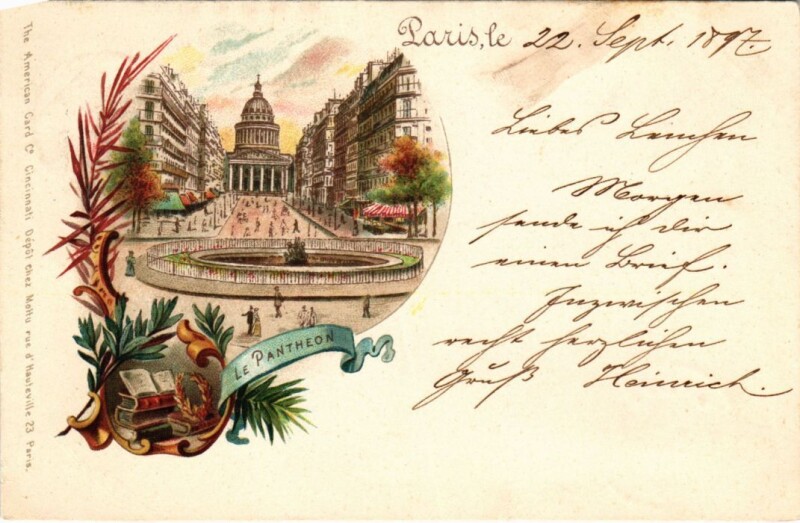 Paris, le 22. Sept. 1897.
Liebes Leinchen
Morgen
sende ich dir
einen Brief.
Inzwischen
recht herzlichen
Gruß Heinrich.
LE PANTHEON
The American Card Cº Cincinnati Dépôt chez Mottu rue d'Hauteville 23 Paris.